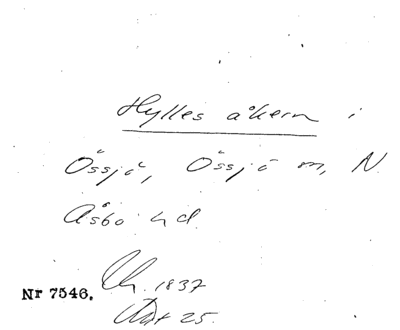 Hylles åkern i
Össjö, Össjö sn, N
Åsbo hd.
Ch. 1837
Nr 7546.
Akt 25.